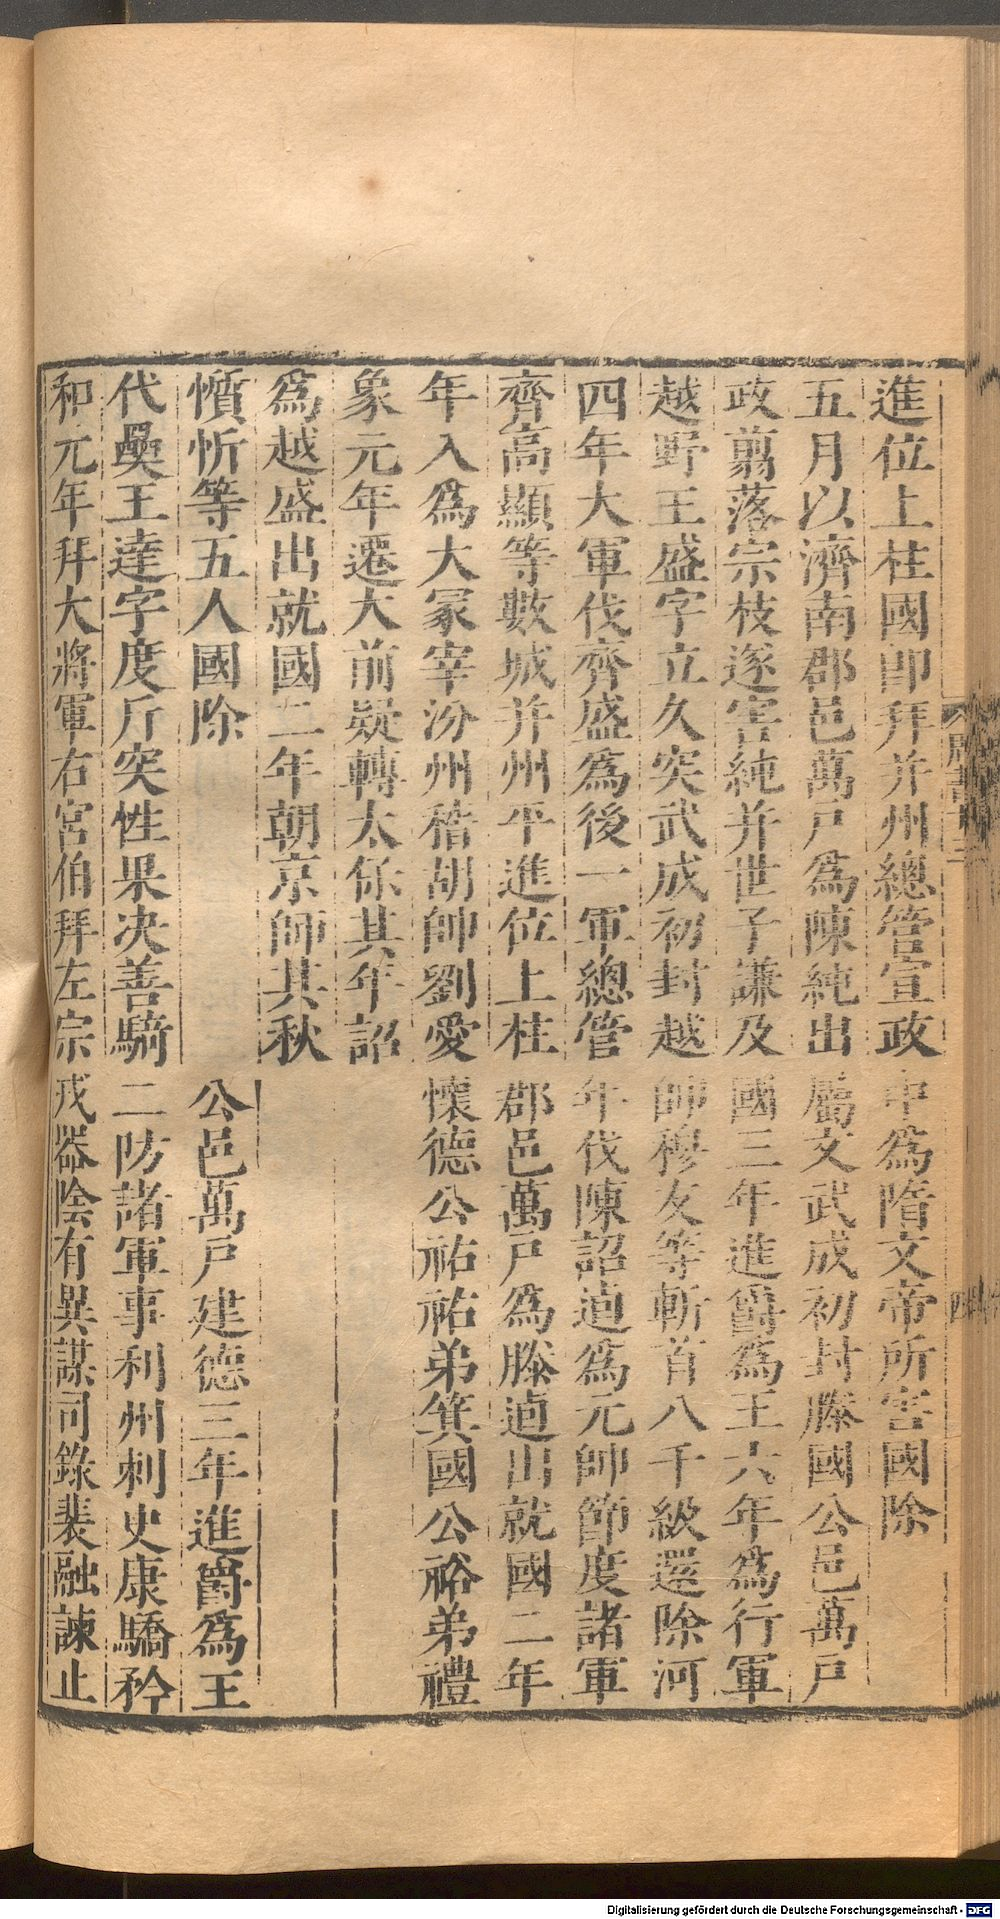 進位上柱國卽拜并州總管宣政中爲隋文帝所害國除
五月以濟南郡邑萬戸爲陳純出屬文武成初封滕國公邑萬戸
政翦落宗枝遂害純并世子謙及國三年進爵爲王六年爲行軍
越野王盛字立久突武成初封越帥穆友等斬首八千級還除河
四年大軍伐齊盛爲後一軍總管年伐陳詔逌爲元帥節度諸軍
齊高顯等數城并州平進位上柱郡邑萬戸爲滕逌出就國二年
年入爲大冢宰汾州稽胡帥劉愛懷德公祐祐弟箕國公裕弟禮
象元年遷大前疑轉太保其年詔
爲越盛出就國二年朝京師其秋
懫忻等五人國除公邑萬戸建德三年進爵爲王
代奰王達字度斤突性果决善騎二防諸軍事利州刺史康驕矜
和元年拜大將軍右宮伯拜左宗戎器陰有異謀司錄裴融諫止
Digitalisierung gefördert durch die Deutsche Forschungsgemeinschaft - DFG